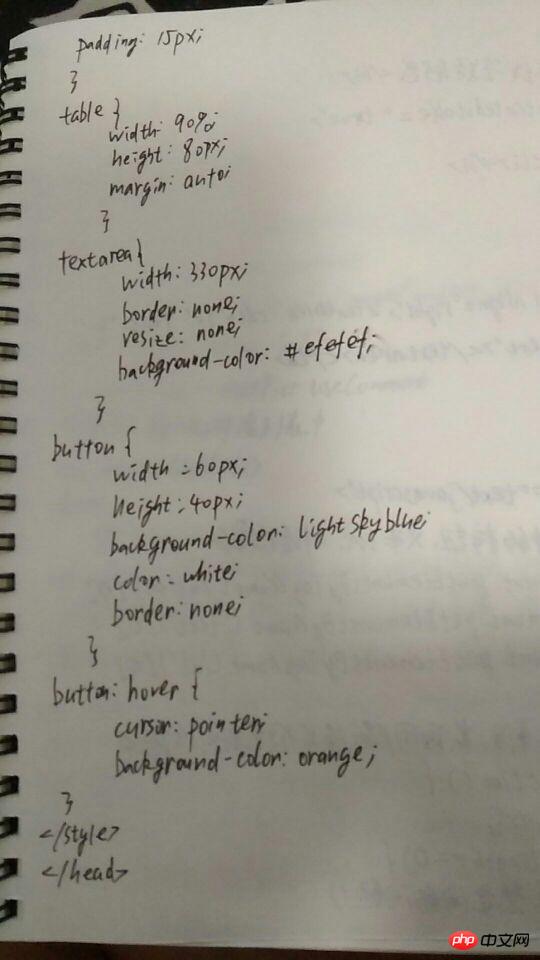 padding: 15px;
}
table {
width: 90%;
height: 80px;
margin: auto;
}
textarea{
width: 330px;
border: none;
resize: none;
background-color: #efefef;
}
button {
width: 60px;
height: 40px;
background-color: lightskyblue;
color: white;
border: none;
}
button: hover {
cursor: pointer;
background-color: orange;
}
</style>
</head>
php 中文网